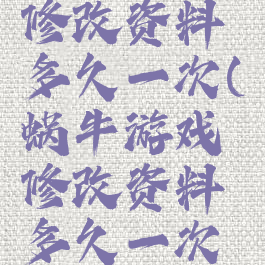 修改资料
多久一次(
蜗牛游戏
修改资料
多久一次